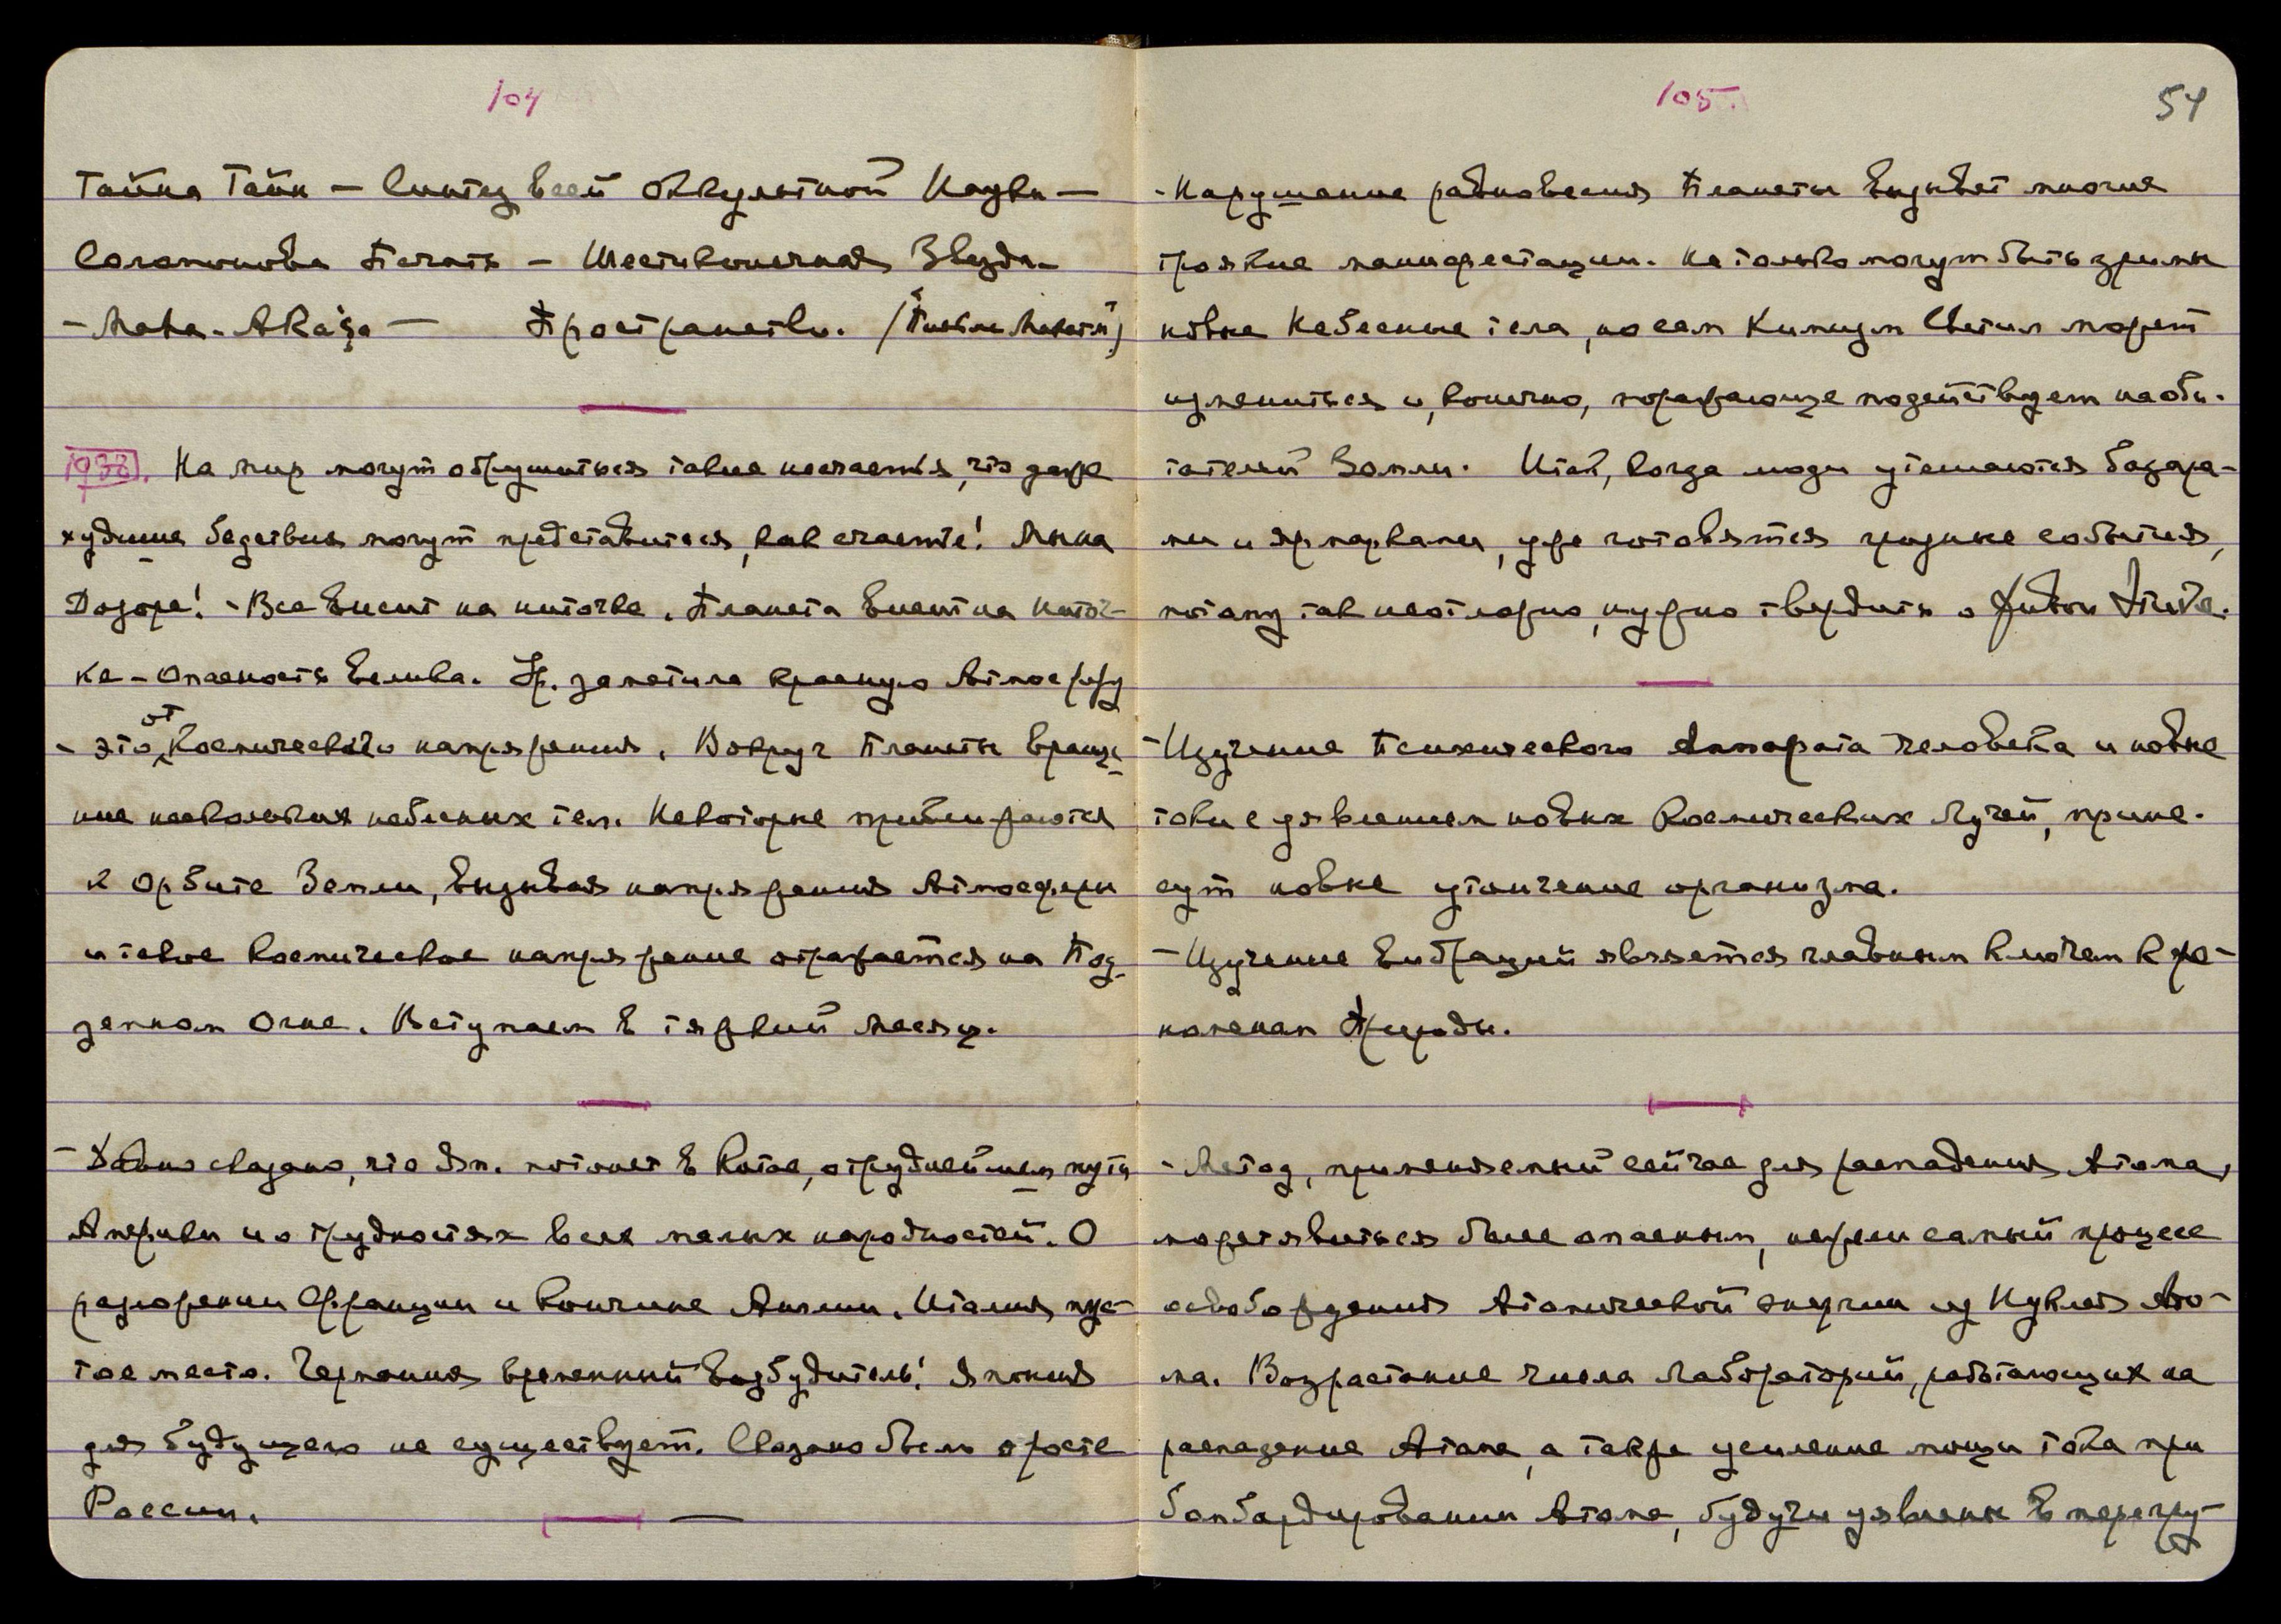 104
Тайна Тайн — Синтез всей Оккультной Науки —
Соломонова Печать — Шестиконечная Звезда —
— Маha-Akaça — Пространство. (Письма Махатм)
1938. На мир могут обрушиться такие несчастья, что даже
худшие бедствия могут представиться, как счастье! Мы на
Дозоре! — Все висит на ниточке. Планета висит на ниточ-
ке — опасность велика. Ур. заметила красную Атмосферу
— это от Космического напряжения. Вокруг Планеты враще-
ние нескольких небесных тел. Некоторые приближаются
к орбите Земли, вызывая напряжения Атмосферы
и такое Космическое напряжение отражается на Под-
земном Огне. Вступаем в тяжкий Месяц.
— Давно сказано, что Яп. потонет в Китае, о труднейшем пути
Америки и о трудностях всех малых народностей. О
разложении Франции и кончине Англии. Италия пус-
тое место. Германия временный возбудитель! Япония
для будущего не существует. Сказано было о росте
России.
105. 54
— Нарушение равновесия Планеты вызывает многие
грозные манифестации. Не только могут быть зримы
новые Небесные тела, но сам Химизм Светил может
измениться и, конечно, поражающе подействует на оби-
тателей Земли. Итак, когда люди утешаются базара-
ми и ярмарками, уже готовятся грозные события,
потому так неотложно нужно твердить о Живой Этике.
— Изучение Психического Аппарата человека и новые
токи с уявлением новых Космических Лучей, прине-
сут новые утончение организма.
— Изучение Вибраций является главным Ключем к фе-
номенам Природы.
— Метод, применяемый сейчас для распадения Атома,
может явиться более опасным, нежели самый процесс
освобождения Атомической энергии из Нуклея Ато-
ма. Возрастание числа Лабораторий, работающих на
распадение Атома, а также усиление мощи тока при
бомбардировании Атома, будучи уявлены в перегру-